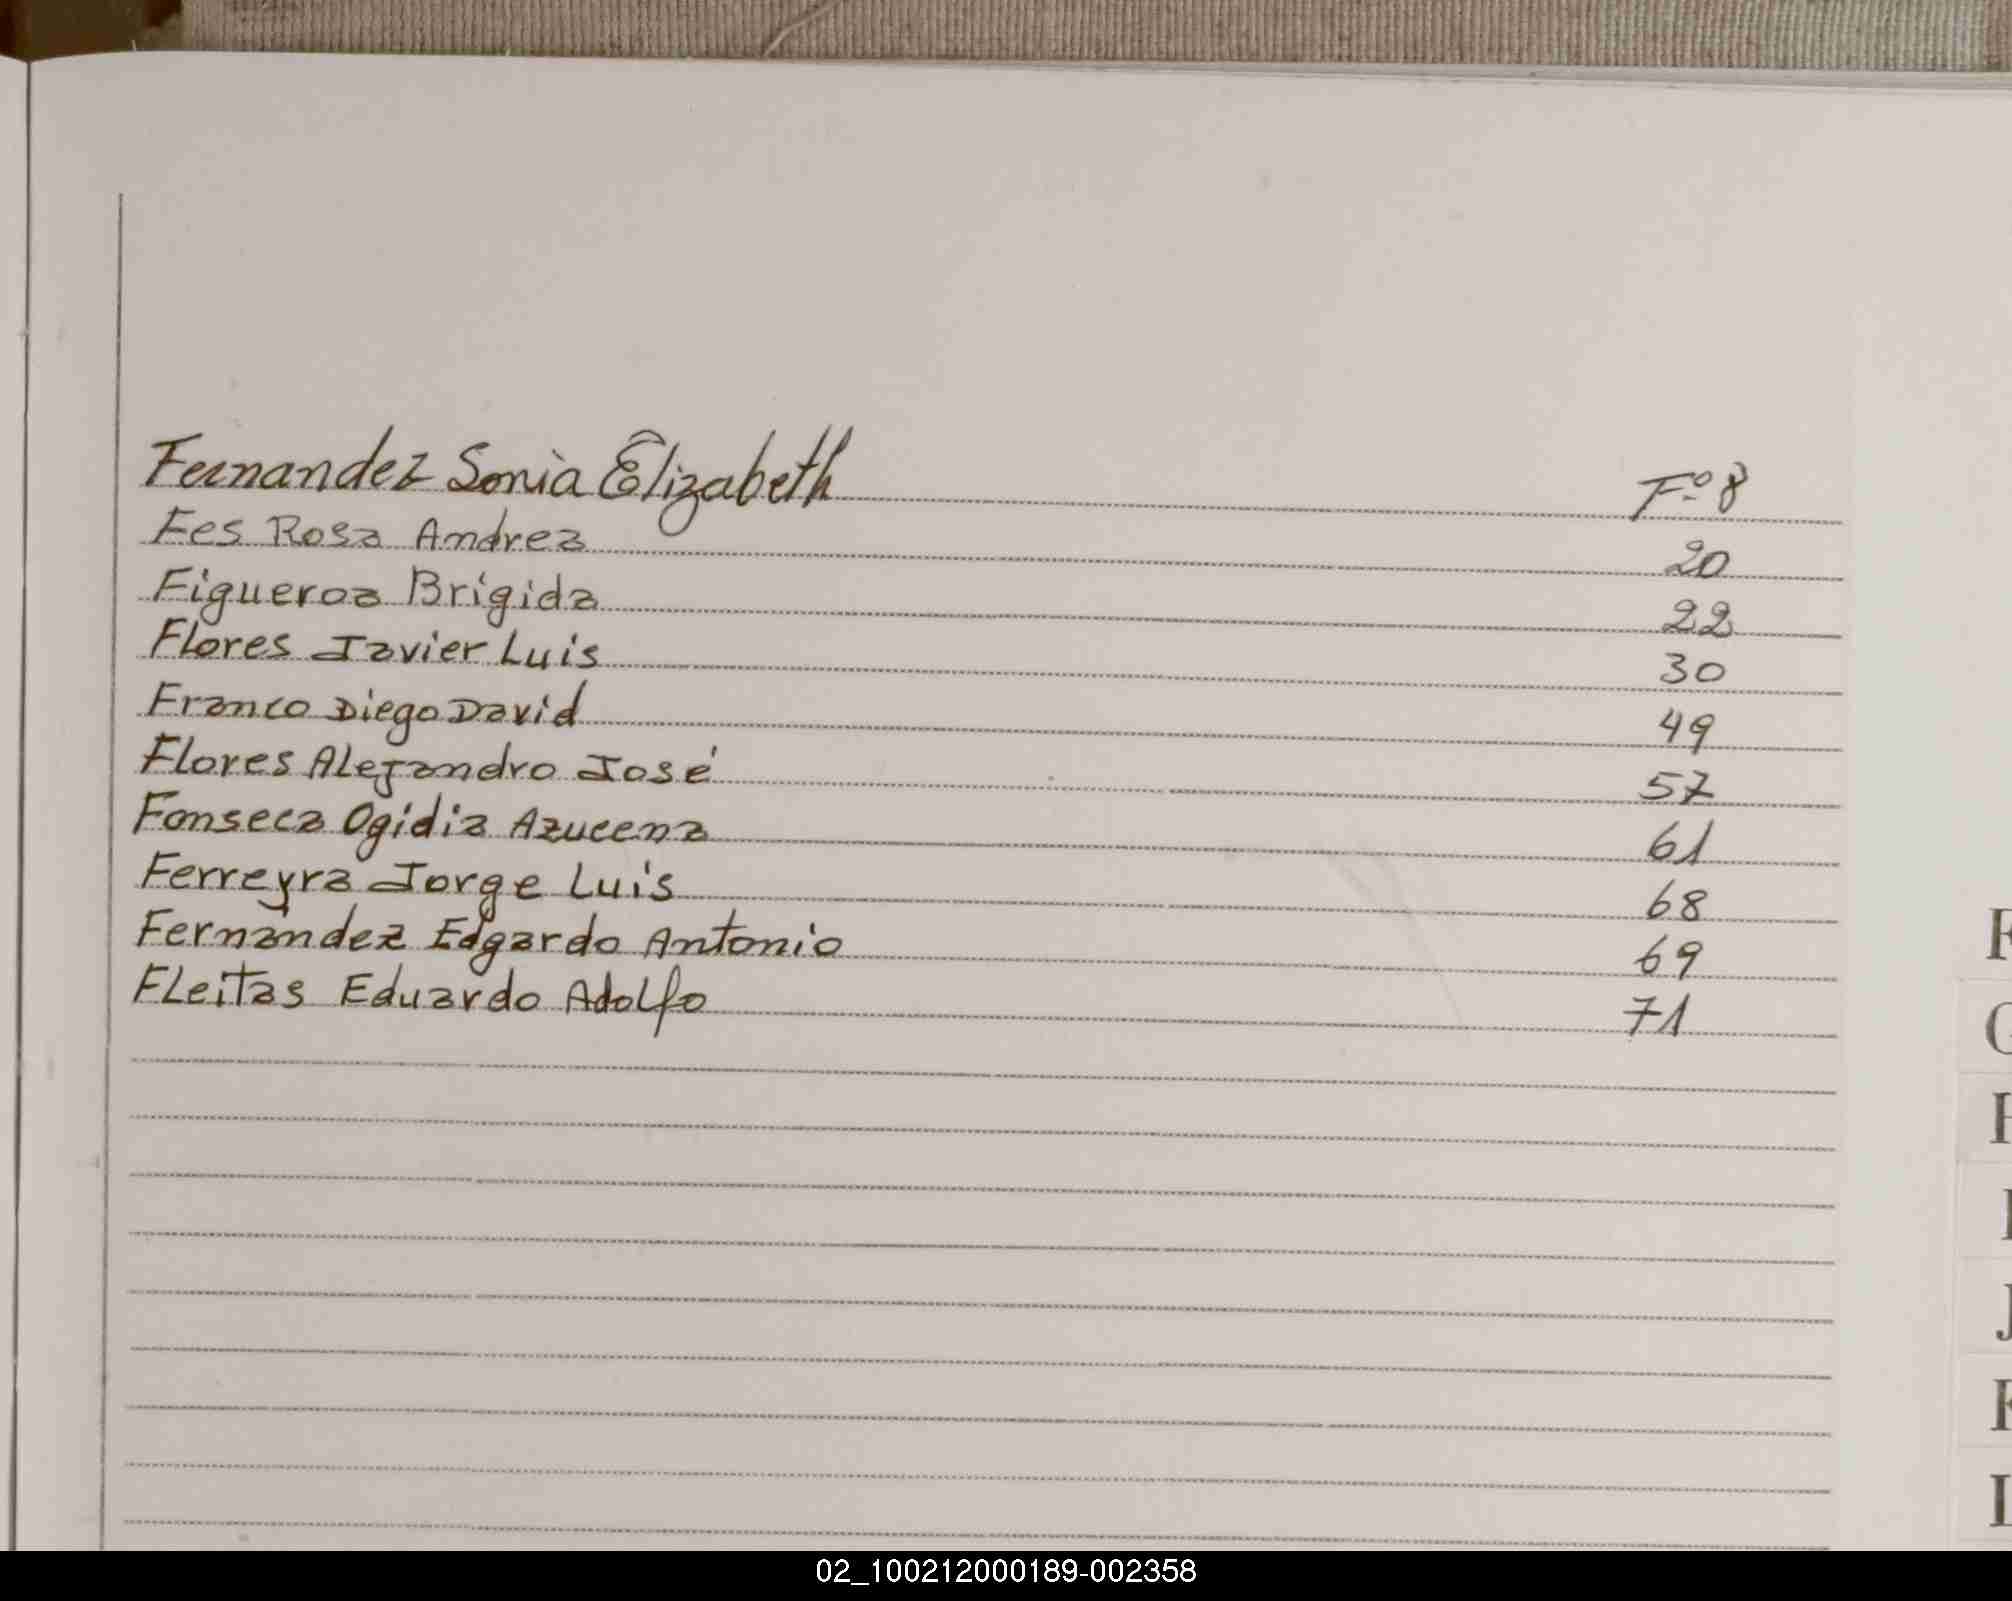 Fernandez Sonia Elizabeth Fº 8
Fes Rosa Andrea 20
Figueroa Brígida 22
Flores Javier Luis 30
Franco Diego David 49
Flores Alejandro José 57
Fonseca Ogidia Azucena 61
Ferreyra Jorge Luis 68
Fernández Edgardo Antonio 69
Fleitas Eduardo Adolfo 71
G
H
I
J
K
L
02_100212000189-002358